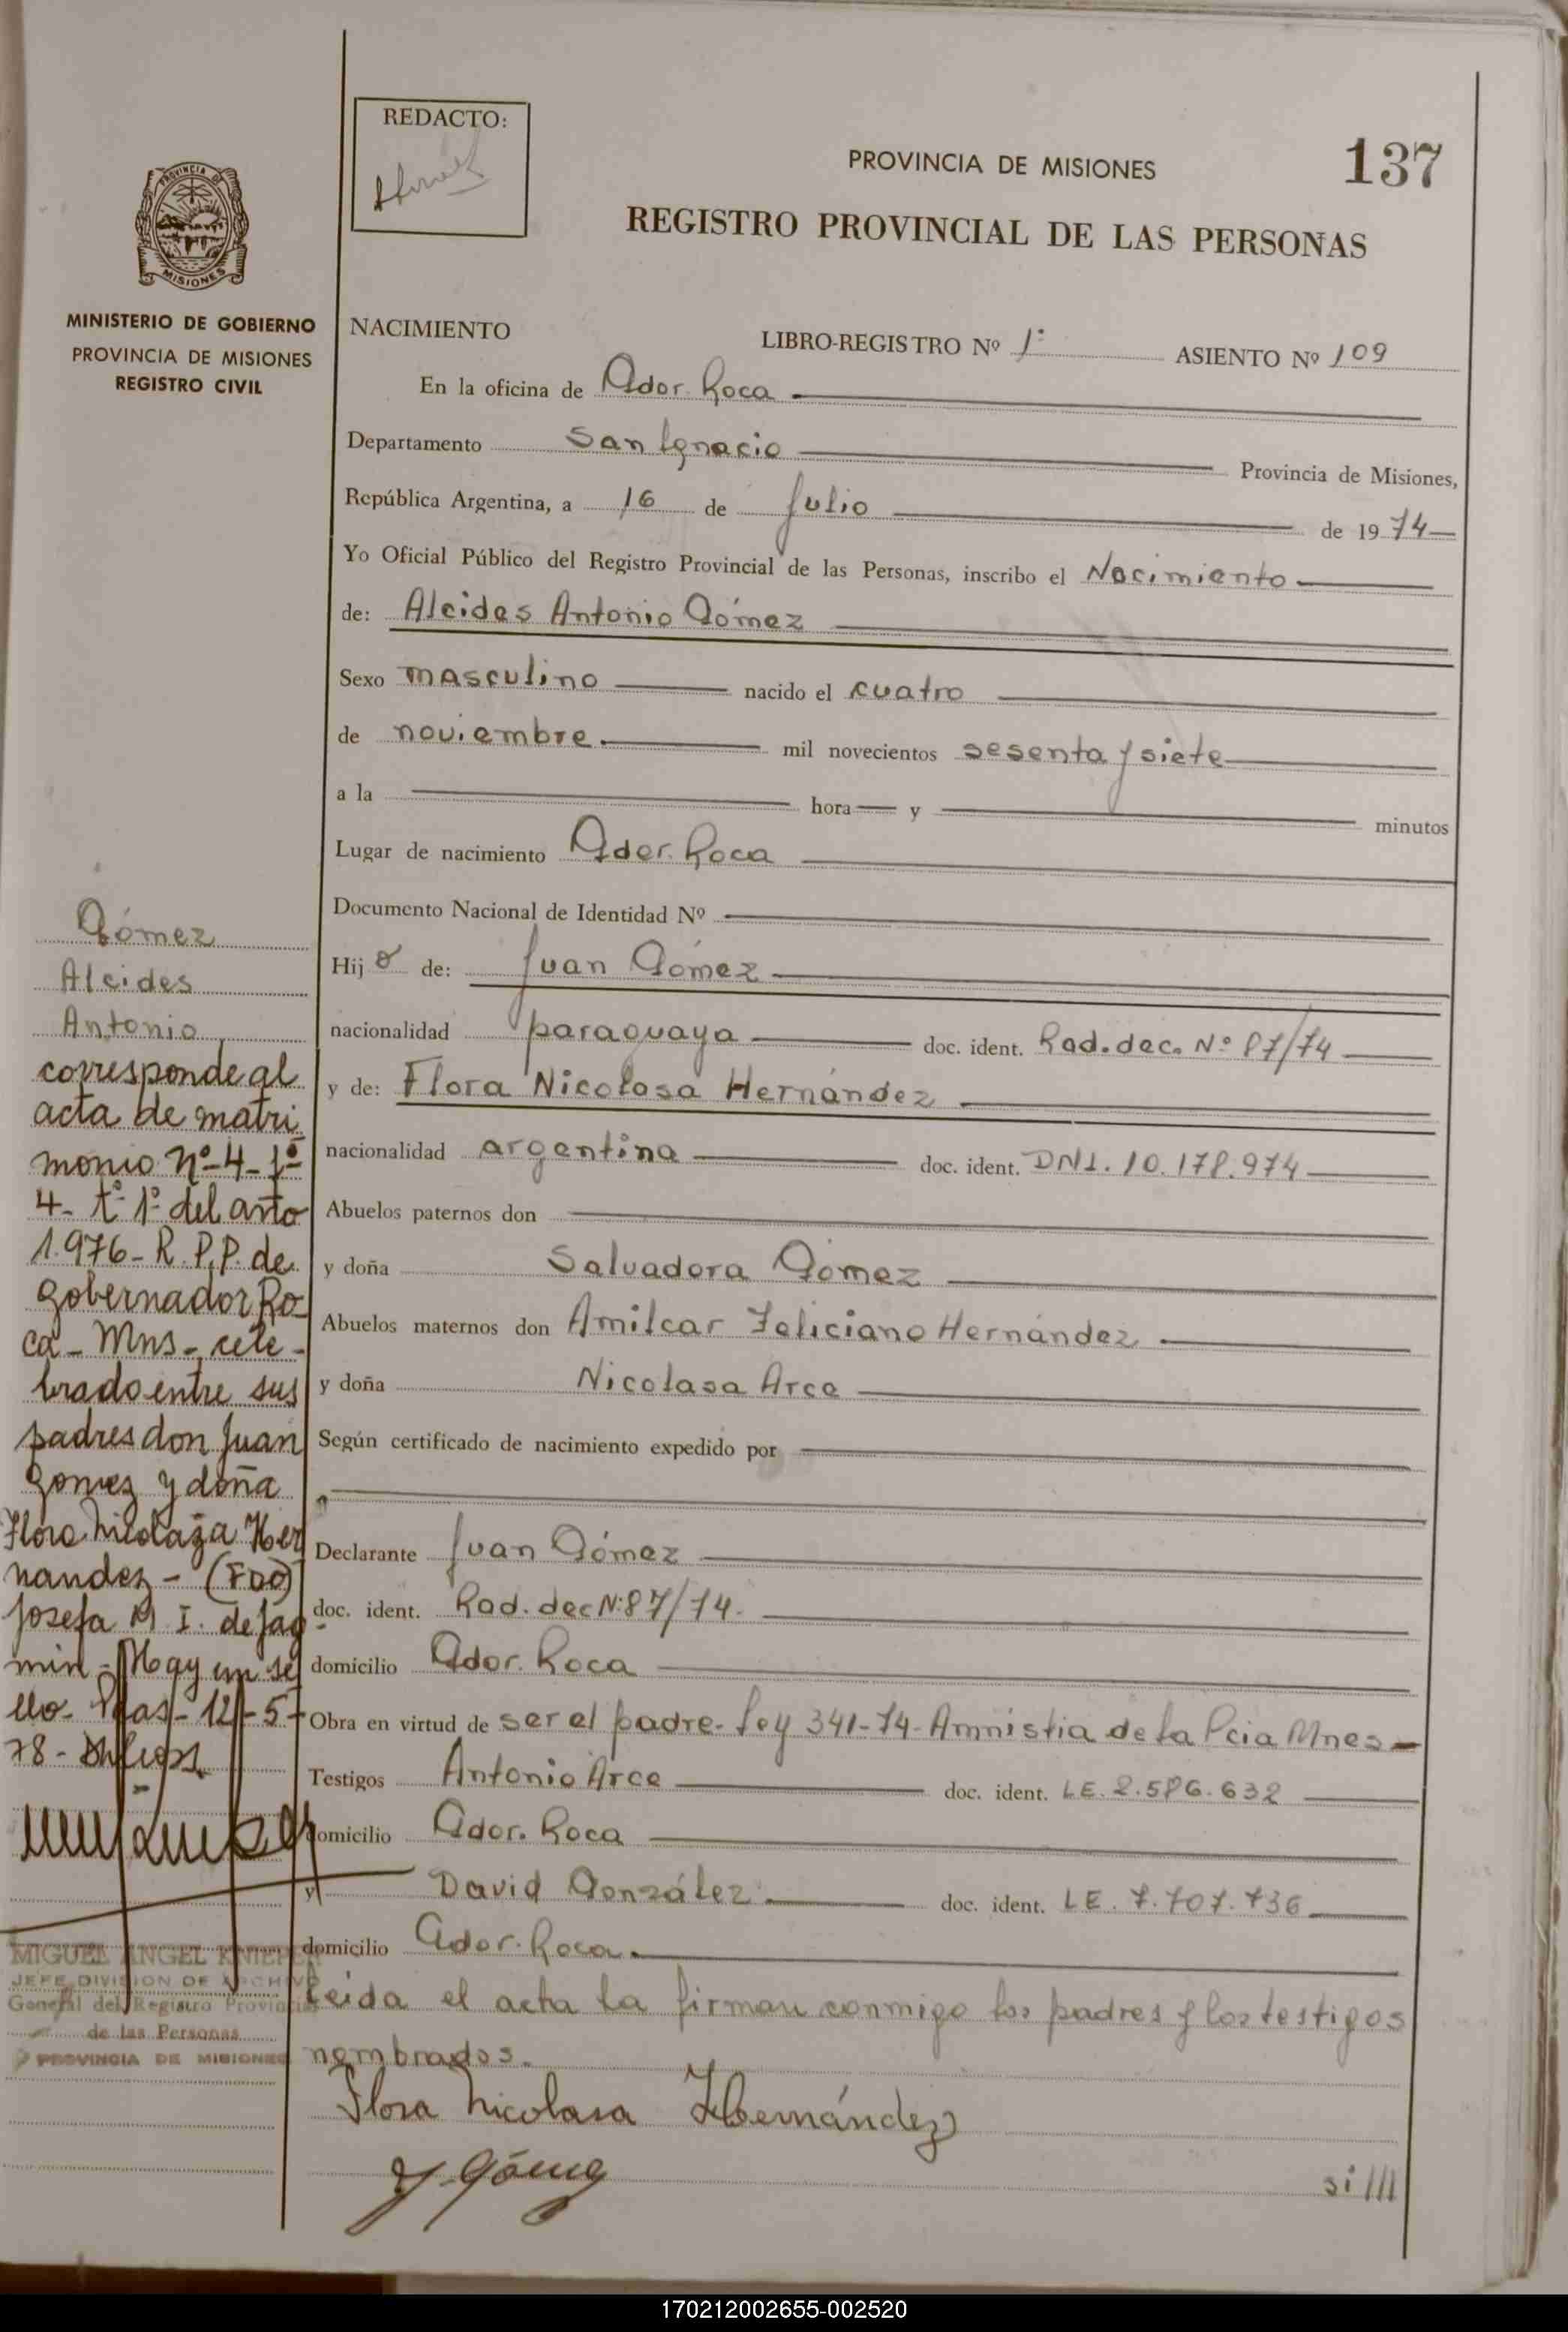 REDACTO:
PROVINCIA DE MISIONES
137
REGISTRO PROVINCIAL DE LAS PERSONAS
PROVINCIA DE
MISIONES
MINISTERIO DE GOBIERNO
PROVINCIA DE MISIONES
REGISTRO CIVIL
NACIMIENTO LIBRO-REGISTRO Nº 1º ASIENTO Nº 109
En la oficina de Gdor. Roca
Departamento San Ignacio Provincia de Misiones,
República Argentina, a 16 de Julio de 1974
Yo Oficial Público del Registro Provincial de las Personas, inscribo el Nacimiento
de: Alcides Antonio Gómez
Sexo masculino nacido el cuatro
de noviembre mil novecientos sesenta y siete
a la hora y minutos
Lugar de nacimiento Gdor. Roca
Documento Nacional de Identidad Nº
Hijo de: Juan Gómez
nacionalidad paraguaya doc. ident. Rad. dec. Nº 87/74
y de: Flora Nicolasa Hernández
nacionalidad argentina doc. ident. DNI. 10.178.974
Abuelos paternos don
y doña Salvadora Gómez
Abuelos maternos don Amilcar Feliciano Hernández
y doña Nicolasa Arce
Según certificado de nacimiento expedido por
Declarante Juan Gómez
doc. ident. Rad. dec Nº 87/74.
domicilio Gdor. Roca
Obra en virtud de ser el padre- Ley 341-74- Amnistia de la Pcia Mnes-
Testigos Antonio Arce doc. ident. LE. 2.586.632
domicilio Gdor. Roca
y David González doc. ident. LE. 7.707.736
domicilio Gdor. Roca.
Leida el acta la firman conmigo los padres y los testigos
nombrados.
Flora Nicolasa Hernández
J. Gómez
si///
Gómez
Alcides
Antonio
corresponde al
acta de matri
monio Nº-4-Fº
4- tº 1º del año
1.976- R.P.P. de
Gobernador Ro-
ca- Mns- cele-
brado entre sus
padres don Juan
Gomez y doña
Flora Nicolaza Her
nandez- (FDO)
Josefa M I. de Jag
min- Hay un se
llo- Pdas- 12-5-
78-
MIGUEL ANGEL KNIEPER
JEFE DIVISION DE ARCHIVO
General del Registro Provincial
de las Personas
PROVINCIA DE MISIONES
170212002655-002520